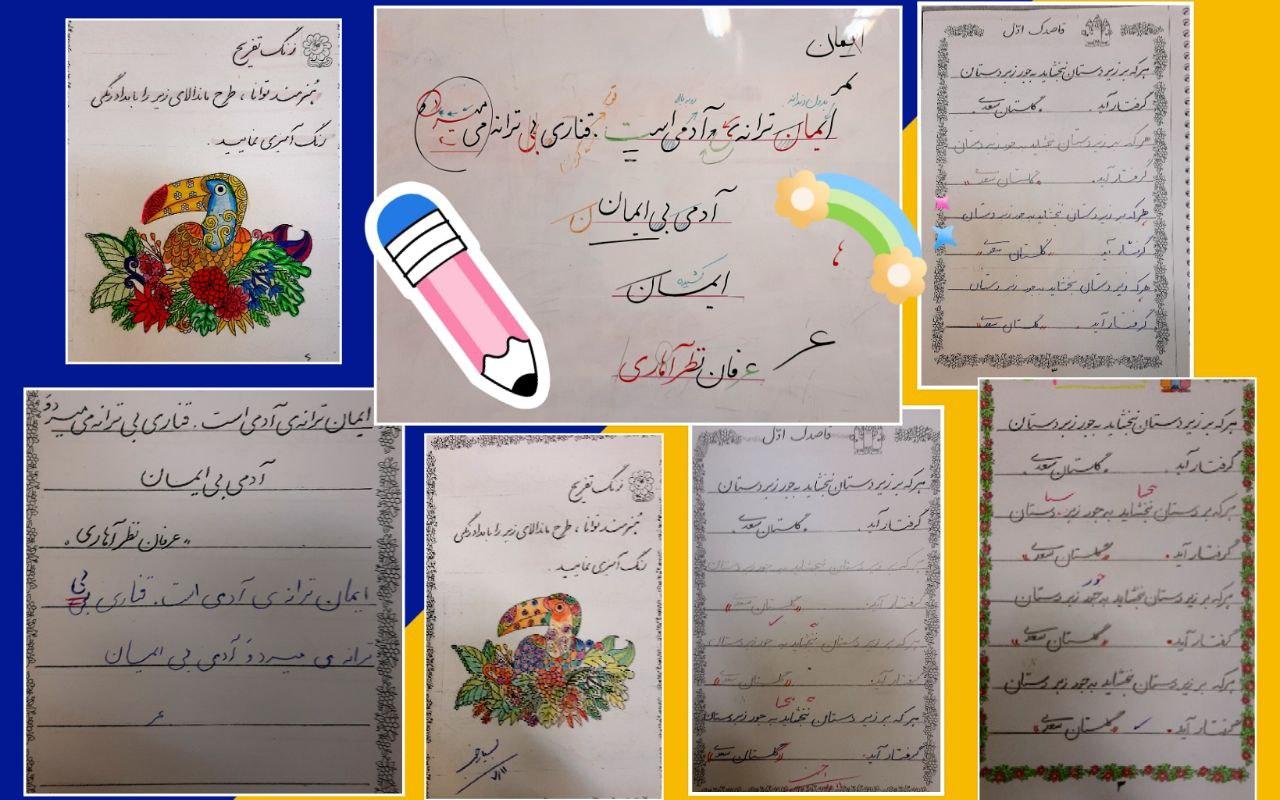 زنگ تفریح
هنرمند توانا ، طرح ماندالای زیر را با مداد رنگی
رنگ آمیزی نمایید .
ایمان
ایمان ترانه‌ی آدمی است . قناری بی ترانه می میرد و
آدمی بی ایمان
کشیده
ایمان
عرفان نظرآهاری
ع
قاصدک اوّل
هرکه بر زیردستان نبخشاید به جور زبردستان
گرفتار آید . گلستان سعدی
هرکه بر زیردستان نبخشاید به جور زبردستان
گرفتار آید . «گلستان سعدی»
هرکه بر زیردستان نبخشاید به جور زبردستان
گرفتار آید . «گلستان سعدی»
هرکه بر زیردستان نبخشاید به جور زبردستان
گرفتار آید . «گلستان سعدی»
ایمان ترانه‌ی آدمی است . قناری بی ترانه می میرد و
آدمی بی ایمان
«عرفان نظرآهاری»
ایمان ترانه ی آدمی است . قناری بی
ترانه ی میرد و آدمی بی ایمان
زنگ تفریح
هنرمند توانا ، طرح ماندالای زیر را با مداد رنگی
رنگ آمیزی نمایید .
قاصدک اوّل
هرکه بر زیردستان نبخشاید به جور زبردستان
گرفتار آید . گلستان سعدی
هرکه بر زیردستان نبخشاید به جور زبردستان
گرفتار آید . «گلستان سعدی»
هرکه بر زیردستان نبخشاید به جور زبردستان
گرفتار آید . «گلستان سعدی»
هرکه بر زیردستان نبخشاید به جور زبردستان
گرفتار آید . «گلستان سعدی»
هرکه بر زیردستان نبخشاید به جور زبردستان
گرفتار آید . گلستان سعدی
هرکه بر زیردستان نبخشاید به جور زبردستان
گرفتار آید . «گلستان سعدی»
جور
هرکه بر زیردستان نبخشاید به جور زبردستان
گرفتار آید . «گلستان سعدی»
هرکه بر زیردستان نبخشاید به جور زبردستان
گرفتار آید . «گلستان سعدی»